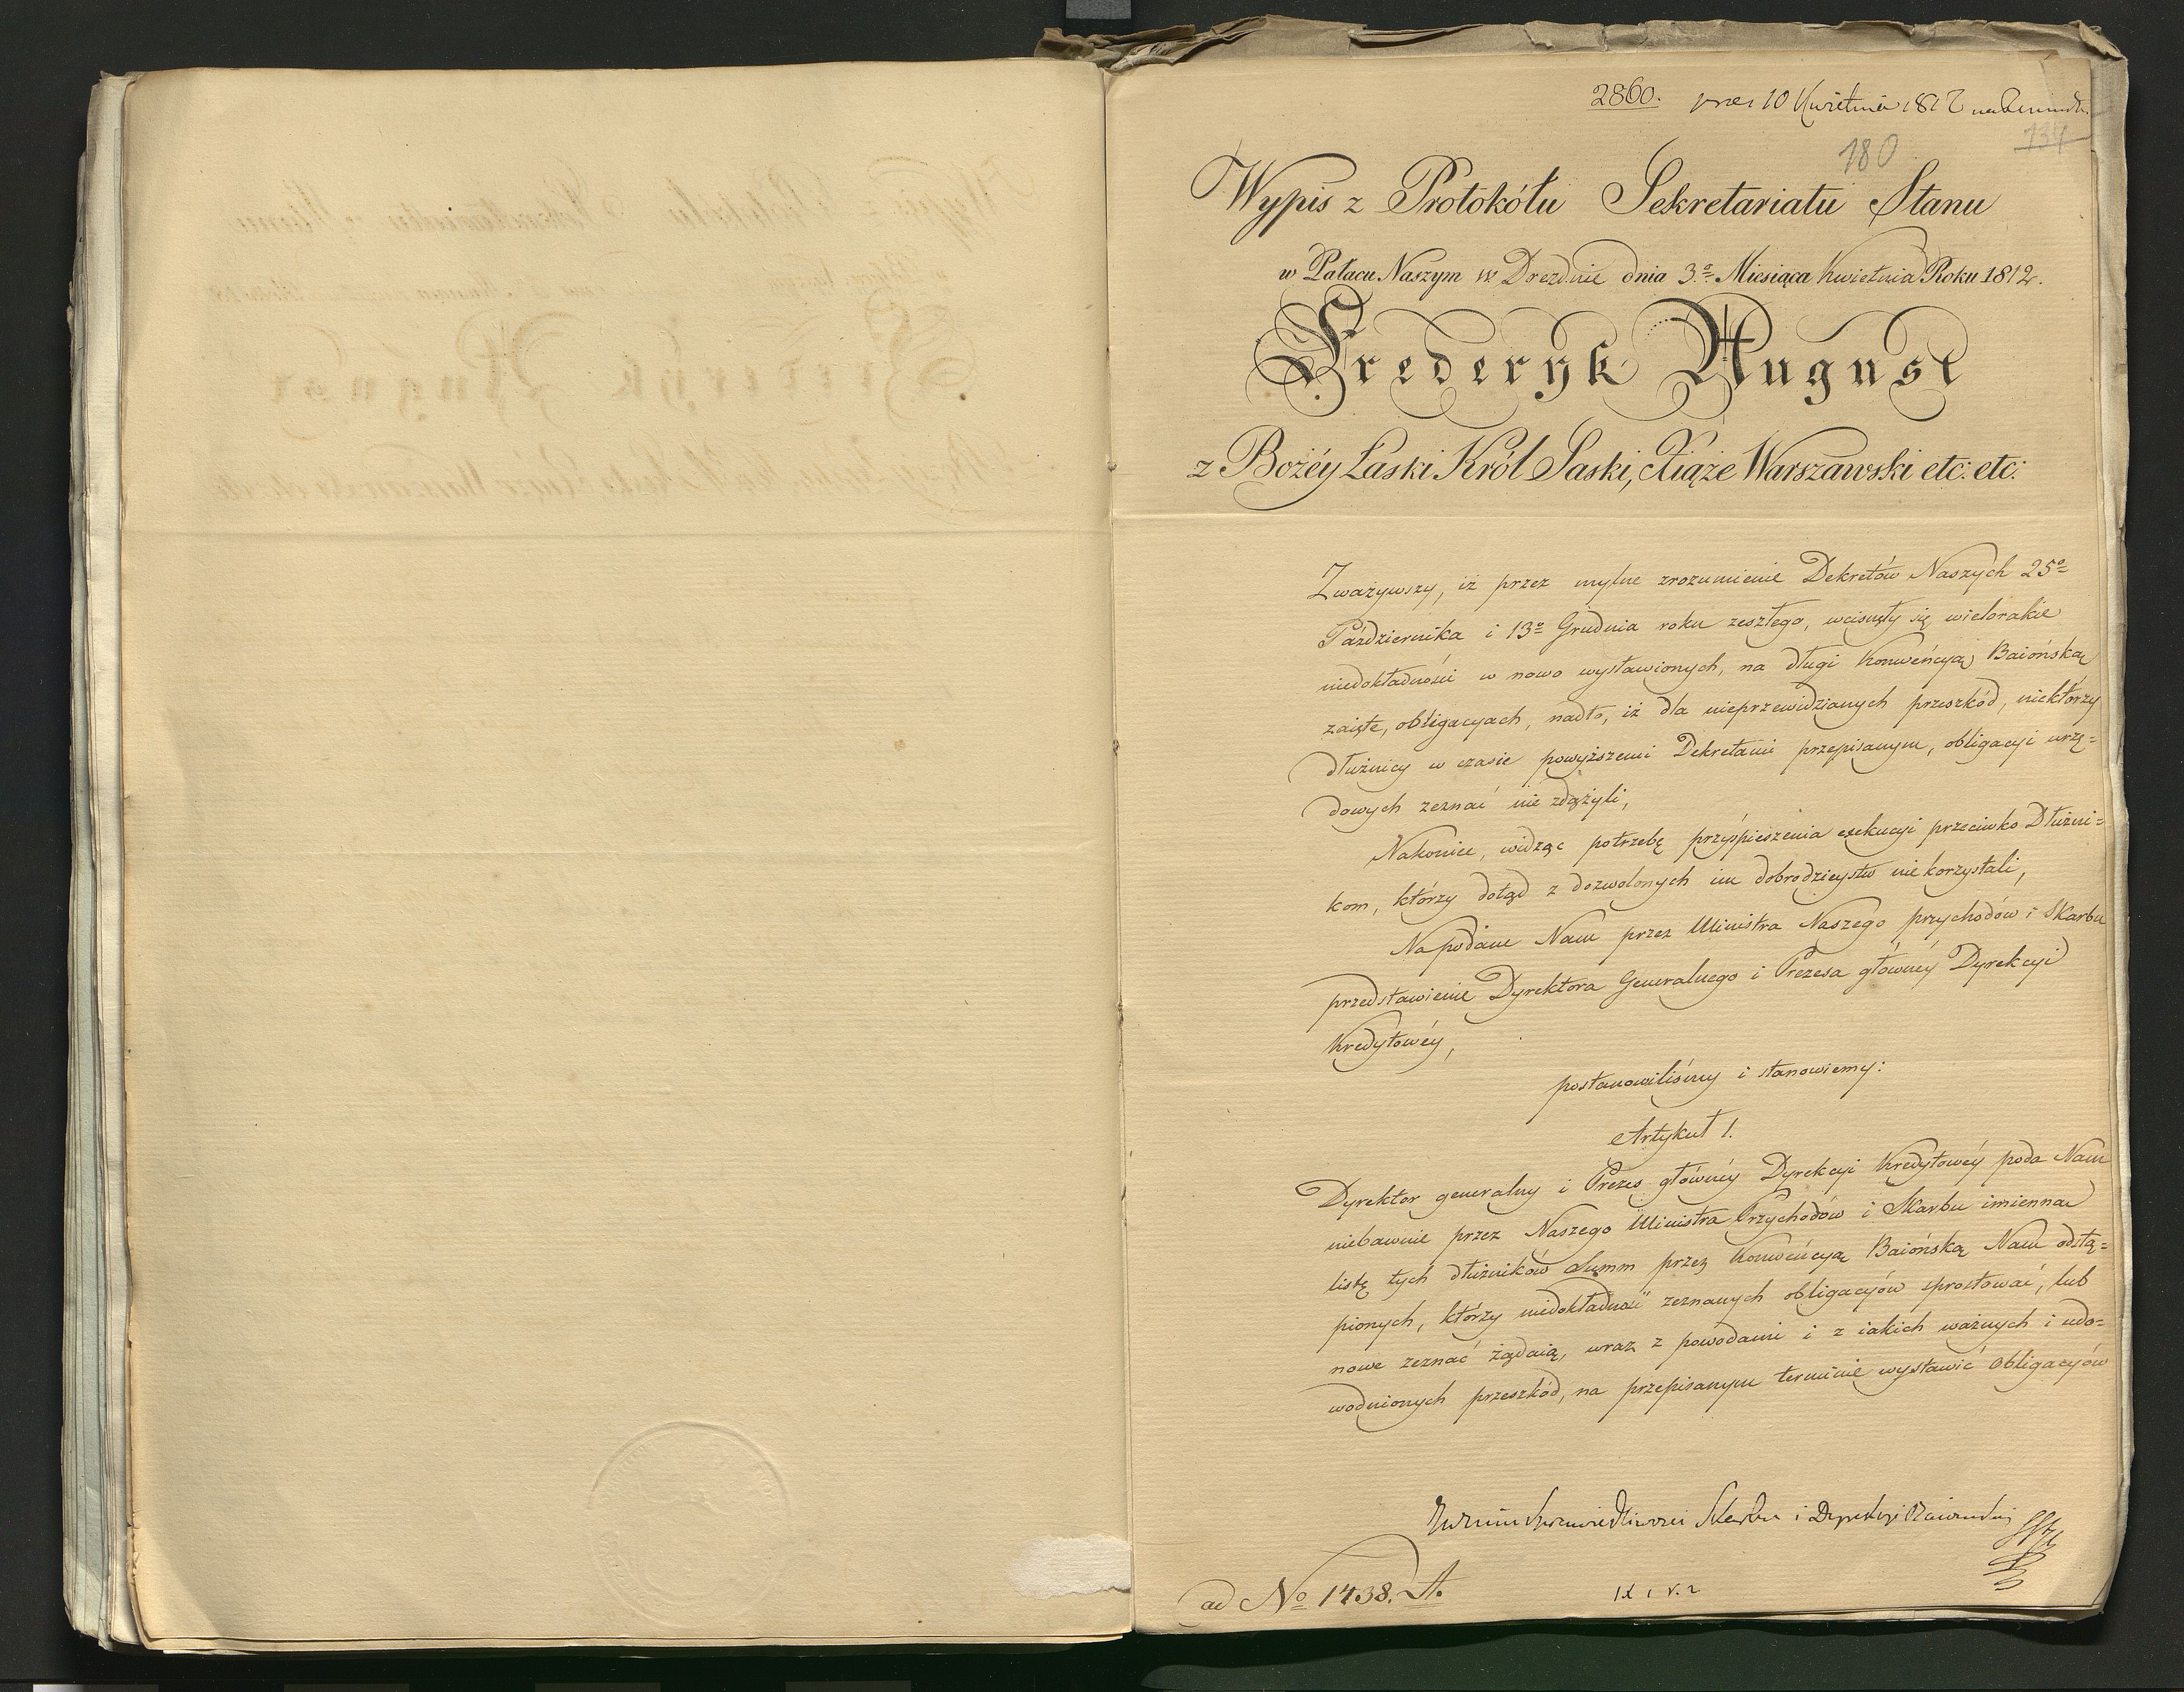 2860. 10 Kwietnia 1812
737
180
Wypis z Protokółu Sekretariatu Stanu
w Pałacu Naszym w Dreznie dnia 3o Miesiąca Kwietnia Roku 1812.
Frederyk August
z Bożéy Łaski Król Saski, Xiąże Warszawski etc: etc:
Zważywszy, iż przez mylne zrozumienie Dekretów Naszych 25o
Października i 13o Grudnia roku zeszłego, wcisnęły się wielorakie
niedokładności w nowo wystawionych, na długi Konwencyą Baiońską
zaięte, obligacyach, nadto, iż dla nieprzewidzianych przeszkód, niektórzy
dłużnicy w czasie powyższemi Dekretami przepisanym, obligacyi urzę=
dowych zeznać nie zdążyli,
Nakoniec, widząc potrzebę przyśpieszenia exekucyi przeciwko Dłużni=
kom, którzy dotąd z dozwolonych im dobrodzieystw nie korzystali,
Na podane Nam przez Ministra Naszego przychodów i Skarbu
przedstawienie Dyrektora Generalnego i Prezesa główney Dyrekcyi
Kredytowéy,
postanowiliśmy i stanowiemy:
Artykuł 1.
Dyrektor generalny i Prezes główney Dyrekcyi Kredytowéy poda Nam
niebawnie przez Naszego Ministra Przychodów i Skarbu imienną
listę tych dłużników Summ przez Konwencyą Baiońską Nam odstą=
pionych, którzy niedokładność zeznanych obligacyów sprostować, lub
nowe zeznać żądaią, wraz z powodami i z iakich ważnych i udo=
wodnionych przeszkód, na przepisanym terminie wystawić Obligacyów
Skarbu i Dyrekcyi
ad No 1438. A.